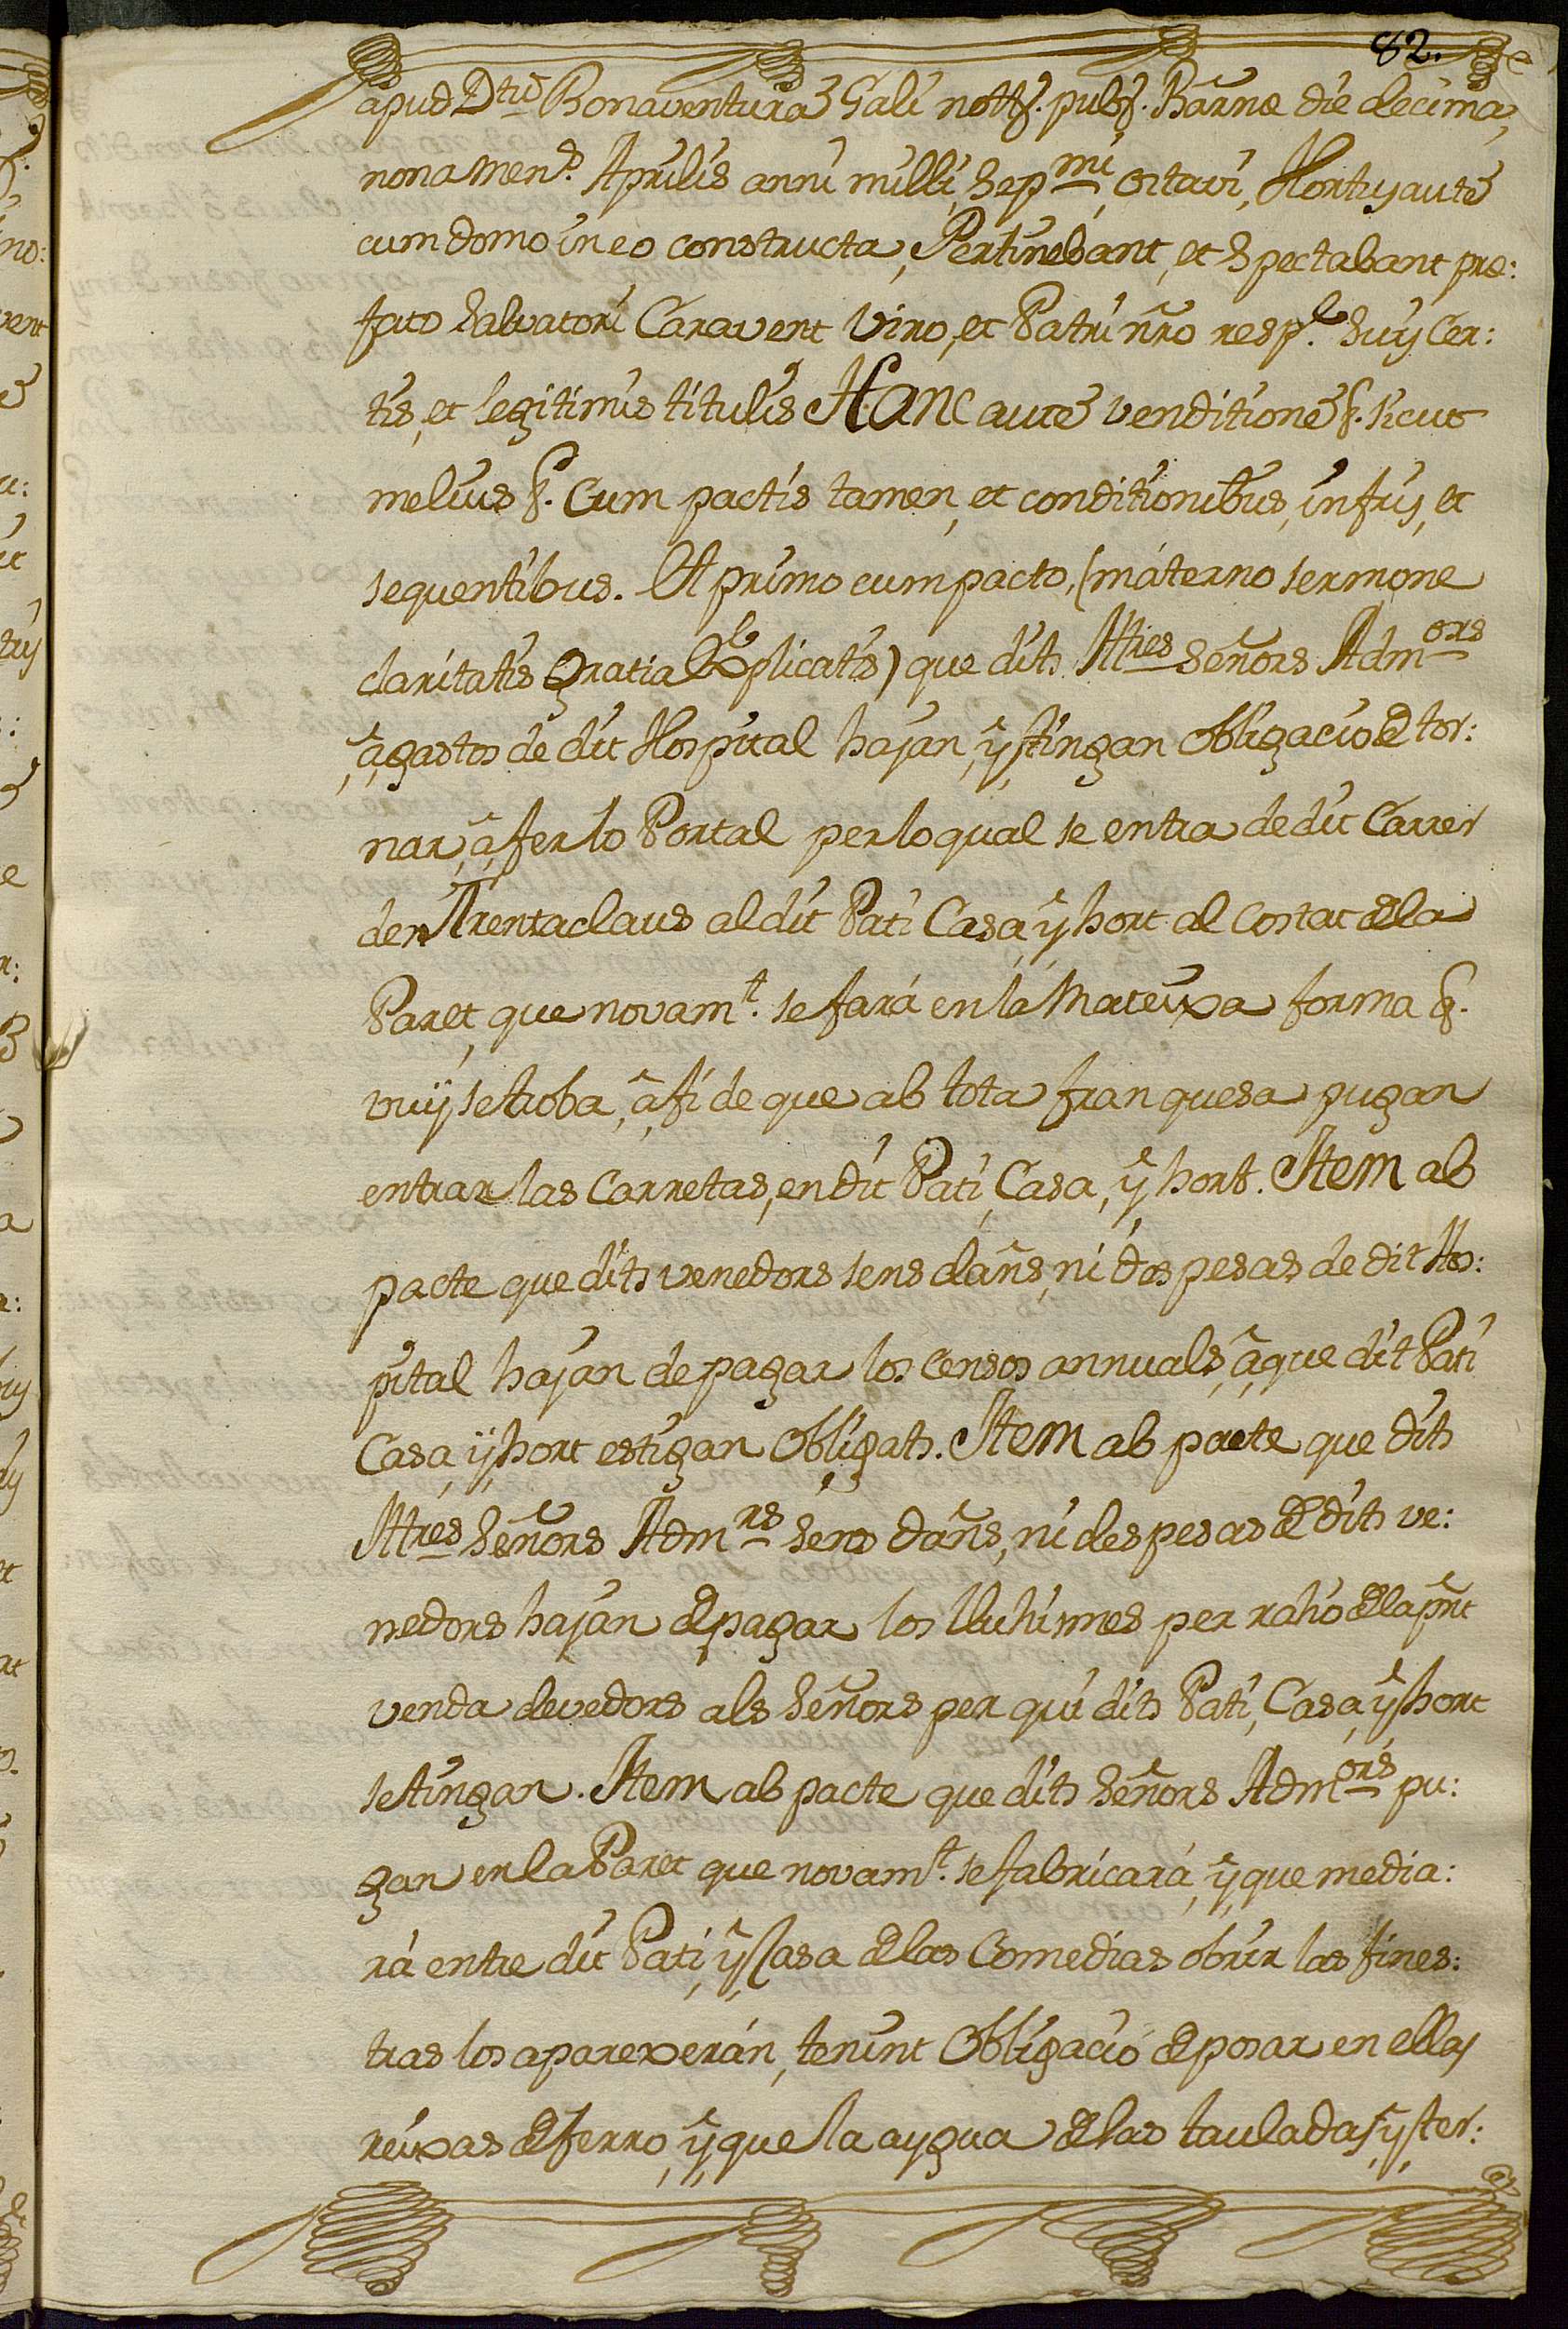 82.
apud Dtũ Bonaventurã Gali nottm. pubm. Barñe die decima
nona mens. Aprilis anni milli, sepmi, octavi, Hortus autẽ
cum domo in eo constructa, Pertinebant, et spectabant præ:
fato Salvatori Caravent Viro, et Patri ñro resp.e suis cer:
tis, et legitimis titulis Hanc autẽ venditionẽ &. sicut
melius &. Cum pactis tamen, et conditionibus, infris, et
sequentibus. Et primo cum pacto, (materno sermone
claritatis gratia explicatis) que dits Ittres Señors Admors
â gastos de dit Hospital hajan, ÿ tingan obligacio de tor:
nar, â fer lo Portal per lo qual se entra de dit Carrer
den Trentaclaus al dit Pati Casa, ÿ hort al costat de la
Paret, que novamt. se farà en la Mateixa forma q.
vuÿ se troba, â fi de que ab tota franquesa pugan
entrar las carretas, en dit Pati, Casa, ÿ hort. Item ab
pacte que dits venedors sens dañs, ni despesas de dit Hos:
pital hajan de pagar los censos annuals, â que dit Pati
Casa, ÿ hort estigan obligats. Item ab pacte que dits
Ittres Señors Admrs sens dañs, ni despesas de dits ve:
nedors hajan de pagar los lluhismes per rahó de la pñt
venda devedors als Señors per qui dits Pati, Casa, ÿ hort
se tingan. Item ab pacte que dits Señors Admors pu:
gan en la Paret que novamt. se fabricarà, ÿ que media:
rà entre dit Pati, ÿ Casa de las Comedias obrir las fines:
tras los aparexeràn, tenint obligació de posar en ellas
reixas de ferro, ÿ que la aygua de las tauladas, ÿ ter: